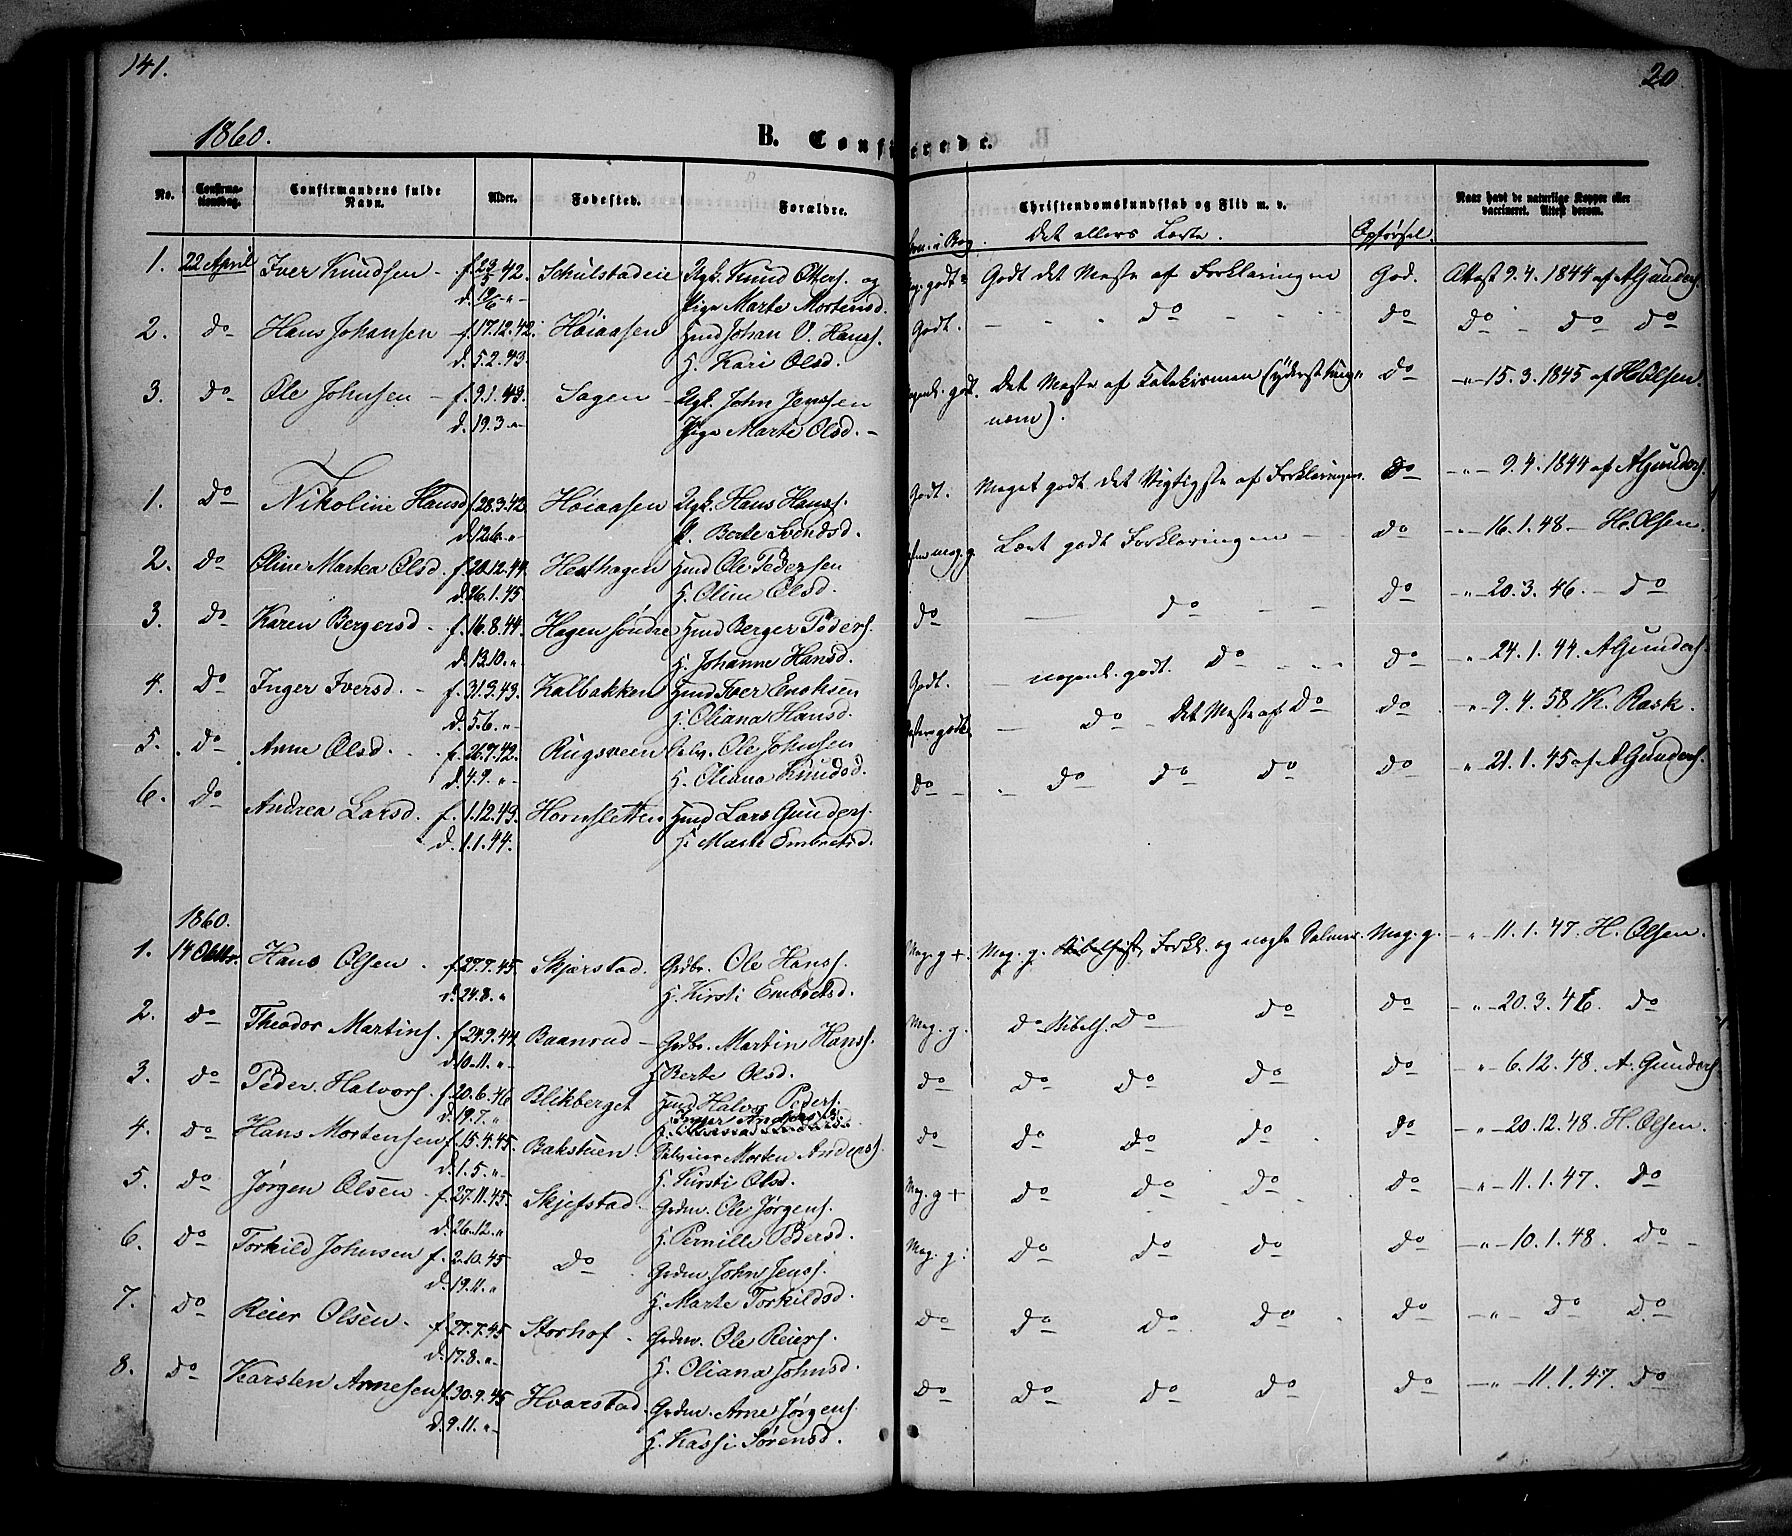 141.
20
1860.
B. Confirmerede.
No. Confirmationsdag. Confirmandens fulde Navn. Alder. Fødested. Forældre. Christendomskundskab og Flid m. v. Naar havt de naturlige Kopper eller vaccineret. Attest derom.
i Bog. Det ellers Lærte. Opførsel.
1. 22 April Iver Knudsen - f. 23/3 42. Schulstadeie Ugk. Knud Otters. og godt Godt det Meste af Forklaringen God. Attest 9.4.1844 af A Gunders.
d. 12/6 -"- Pige Marte Mortensd.
2. do Hans Johansen - f. 17.12.42. Høiaasen Huusmd Johan V. Hanss. Godt. - - - do - - - do do - do do
d. 5.2.43. H. Kari Olsd.
3. do Ole Johnsen - f. 9.1.43. Sagen - Ugk. John Jenssen nogenl. godt. Det Meste af Katekismen (yderst tungnem). do -"- 15.3.1845 af H. Olsen.
d. 19.3 -"- Pige Marte Olsd. -
1. do Nikoline Hansd f. 28.3.42 Høiaasen Ugk. Hans Hanss. Godt. Meget godt det Vigtigste af Forklaringen. do -"- 9.4.1844 af A Gunders.
d. 12.6 -"- P. Berte Svendsd.
2. do Oline Martea Olsd. f. 20.12.44. Hesthagen Huusmd Ole Pedersen meg. g. Lært godt Forklaringen - - do -"- 16.1.48 - H. Olsen.
d. 26.1.45 H. Oline Olsd.
3. do Karen Bergersd - f. 16.8.44. Hagen søndre Huusmd Berger Peders. do - do - - do -"- 20.3.46. - do
d. 13.10. " H. Johanne Hansd.
4. do Inger Iversd. - f. 31.3.43. Kalbakken Huusmd Iver Enoksen Godt. - nogenl. godt. do - - - do " 24.1.44. A Gunders.
d. 5.6. " H. Oliana Hansd.
5. do Anne Olsd. - f. 26.7.42. Rugsveen Selv. Ole Johnsen godt. - do - Det Meste af do do -"- 9.4.58 K. Rask.
d. 4.9. " H. Oliana Knudsd.
6. do Andrea Larsd. f. 1.12.43. Hornsletten Huusmd Lars Gunders. do - - do do do do " 21.1.45 af A Gunders.
d. 1.1.44. H. Marte Embretsd.
1860.
1. 14 Oktbr. Hans Olsen - f. 27.7.45 Skjærstad. Grdbr. Ole Hanss. Meg. g +. Meg. g. Bibelhist, Forkl. og nogle Salmer. Meg. g. -"- 11.1.47. H. Olsen.
d. 24.8. " H. Kirsti Embretsd.
2. do Theodor Martins. f. 29.9.44. Baanrud - Grdbr. Martin Hanss. Meg. g. do Bibelh. do do do -"- 20.3.46. do
d. 10.11. " H. Berte Olsd.
3. do Peder Halvors. f. 20.6.46 Blikberget Huusmd Halvor Peders. do do do do do -"- 6.12.48. A. Gunders.
d. 19.7. " Inger
4. do Hans Mortensen f. 15.4.45. Bakstuen. Selveier Morten Anderss. do do do do do -"- 20.12.48. H. Olsen.
d. 1.5. " H. Kirsti Olsd.
5. do Jørgen Olsen - f. 27.11.45. Skjefstad. Grdm. Ole Jørgens. Meg. g + do do do do -"- 11.1.47. do
d. 26.12. " H. Pernille Pedersd.
6. do Torkild Johnsen f. 2.10.45 do Grdm John Jenss. Meg. g. do do do do -"- 10.1.48. do -
d. 19.11. " H. Marte Torkildsd.
7. do Reier Olsen. f. 27.7.45 Storhof - Grdm. Ole Reiers. do do do do do -"- do do
d. 17.8. " H. Oliana Johnsd.
8. do Karsten Arnesen f. 30.9.45 Hvarstad. Grdm. Arne Jørgens. do do do do do -"- 11.1.47. do
d. 9.11. " H. Kassi Sørensd.